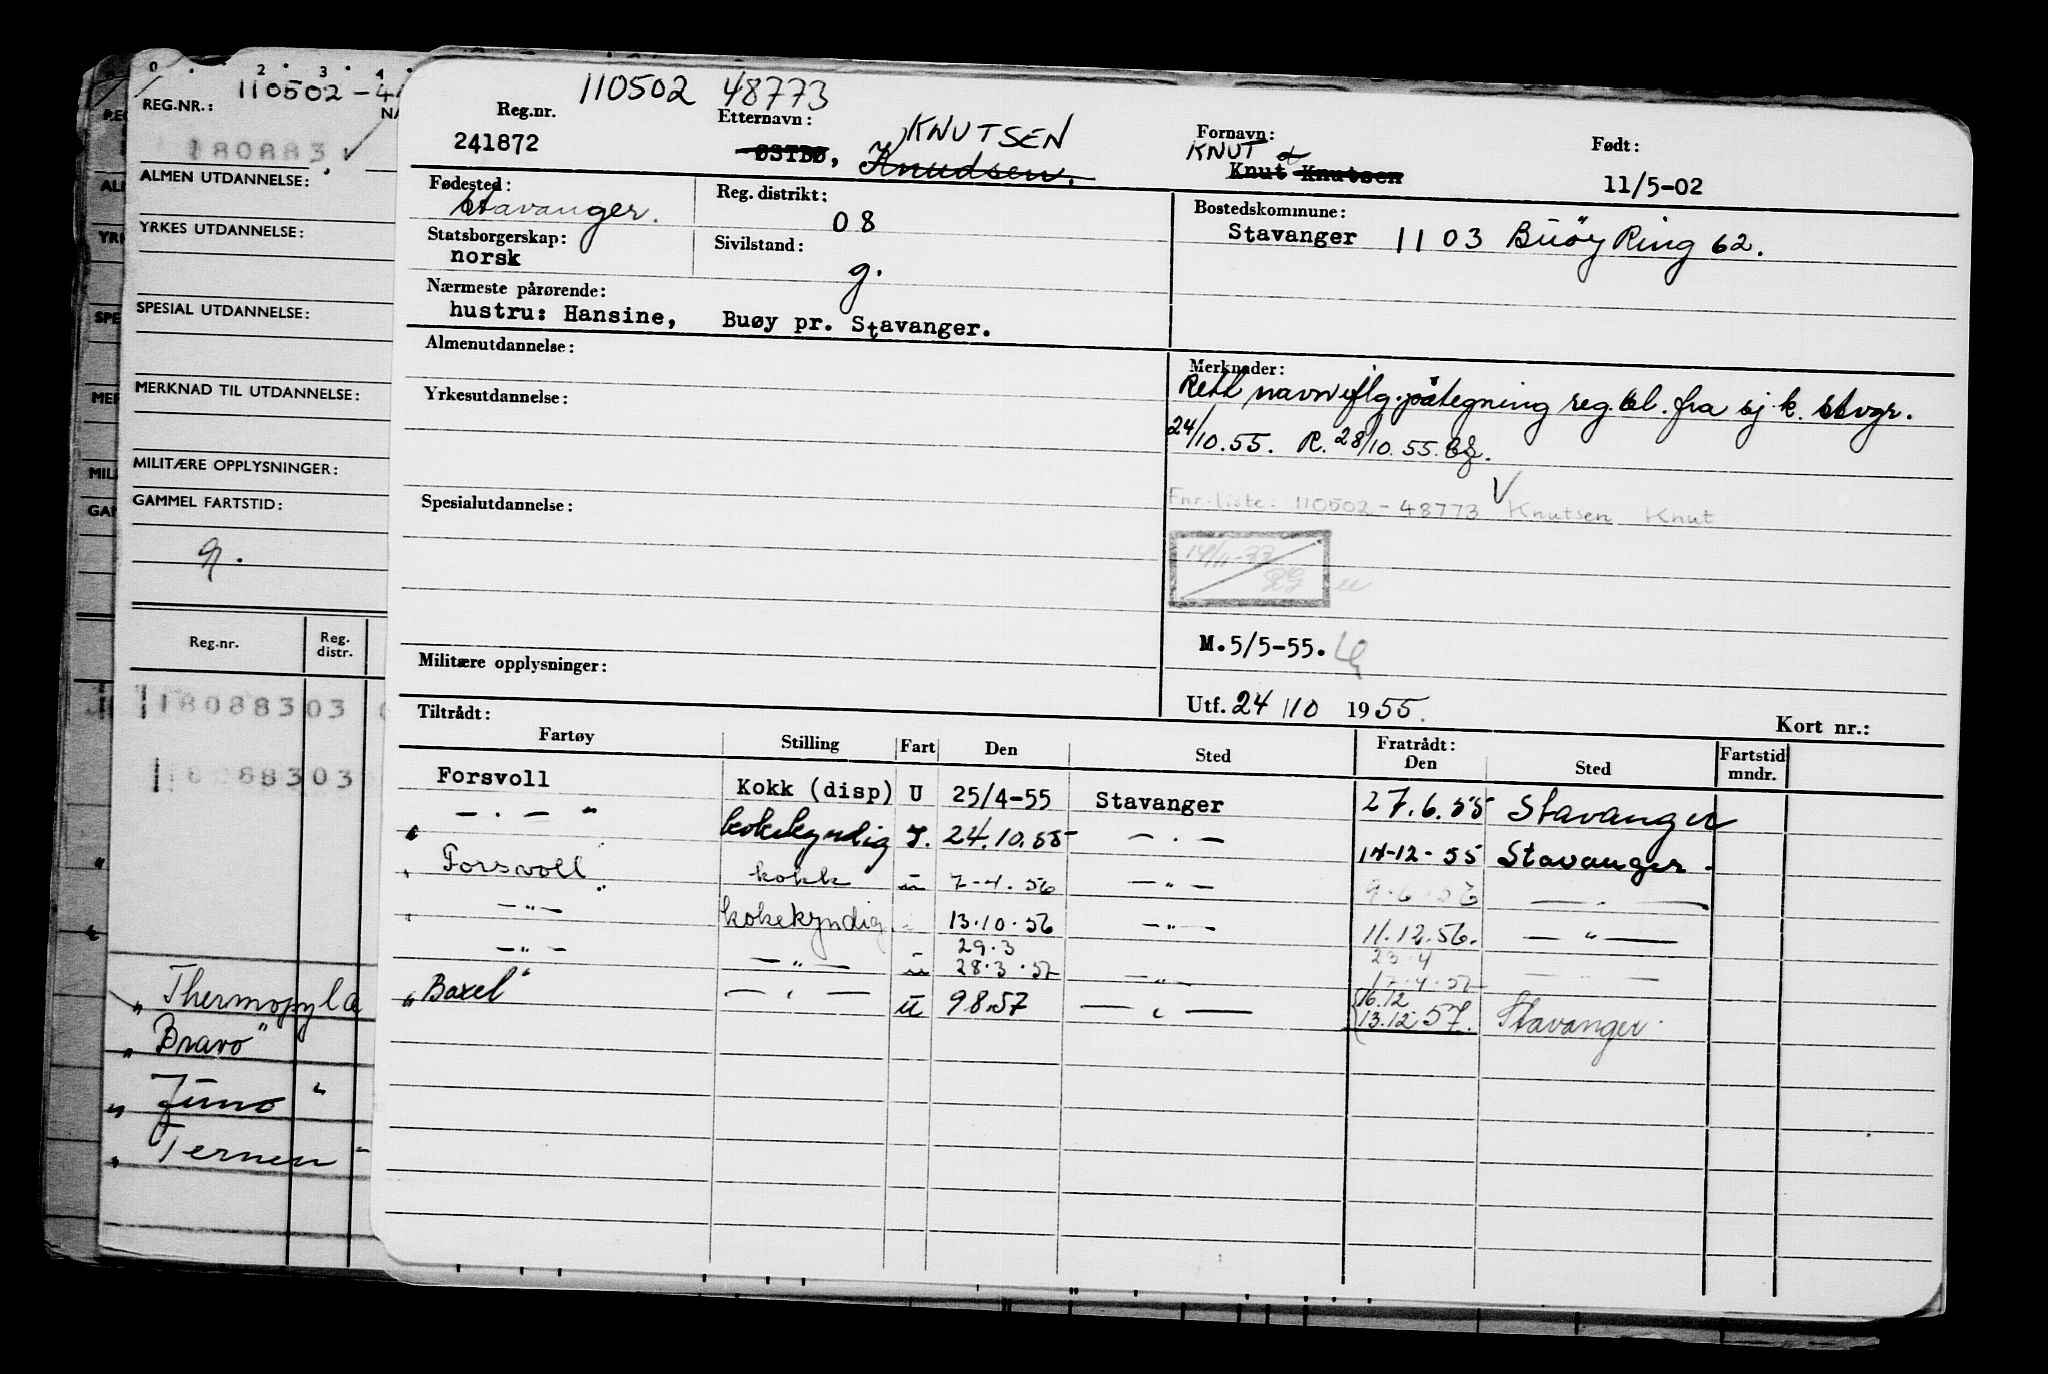 0 2 3 4
REG.NR.: 110502-4
180883
ALMEN UTDANNELSE:
YRKES UTDANNELSE:
SPESIAL UTDANNELSE:
MERKNAD TIL UTDANNELSE:
MILITÆRE OPPLYSNINGER:
GAMMEL FARTSTID:
Reg.nr. Reg. distr.
18088303
"Thermopylæ
"Bravo"
"Juno"
"Ternen"
110502 48773
Reg.nr. Etternavn: Fornavn: Født:
KNUTSEN KNUT
241872 ØSTBØ, Knudsen. Knut Knutsen 11/5-02
Fødested: Reg. distrikt: Bostedskommune:
Stavanger. 08 Stavanger 1103 Buøy Ring 62.
Statsborgerskap: Sivilstand:
norsk g.
Nærmeste pårørende:
hustru: Hansine, Buøy pr. Stavanger.
Almenutdannelse:
Yrkesutdannelse:
Spesialutdannelse:
Militære opplysninger:
Merknader:
Rett navn iflg. påtegning reg.bl. fra sj.k. Stvgr.
24/10.55. R. 28/10.55.
Fnr.liste: 110502-48773 Knutsen Knut
M.5/5-55.
Utf. 24/10 1955. Kort nr.:
Tiltrådt: Fratrådt:
Fartøy Stilling Fart Den Sted Den Sted Fartstid mndr.
Forsvoll Kokk (disp) U 25/4-55 Stavanger 27.6.55 Stavanger
" — . — " kokekyndig 24.10.55 — . — 14-12-55 Stavanger.
" Forsvoll " kokk u 7-4.56 — " — 9.6.56 — . —
" — " — kokekyndig 13.10.56 — " — 11.12.56. — " —
— " — — " — u 29.3 28.3.57 — " — 23.4 17.4.57 — " —
"Boxel" — " — u 9.8.57 — " — 16.12 13.12 57. Stavanger.